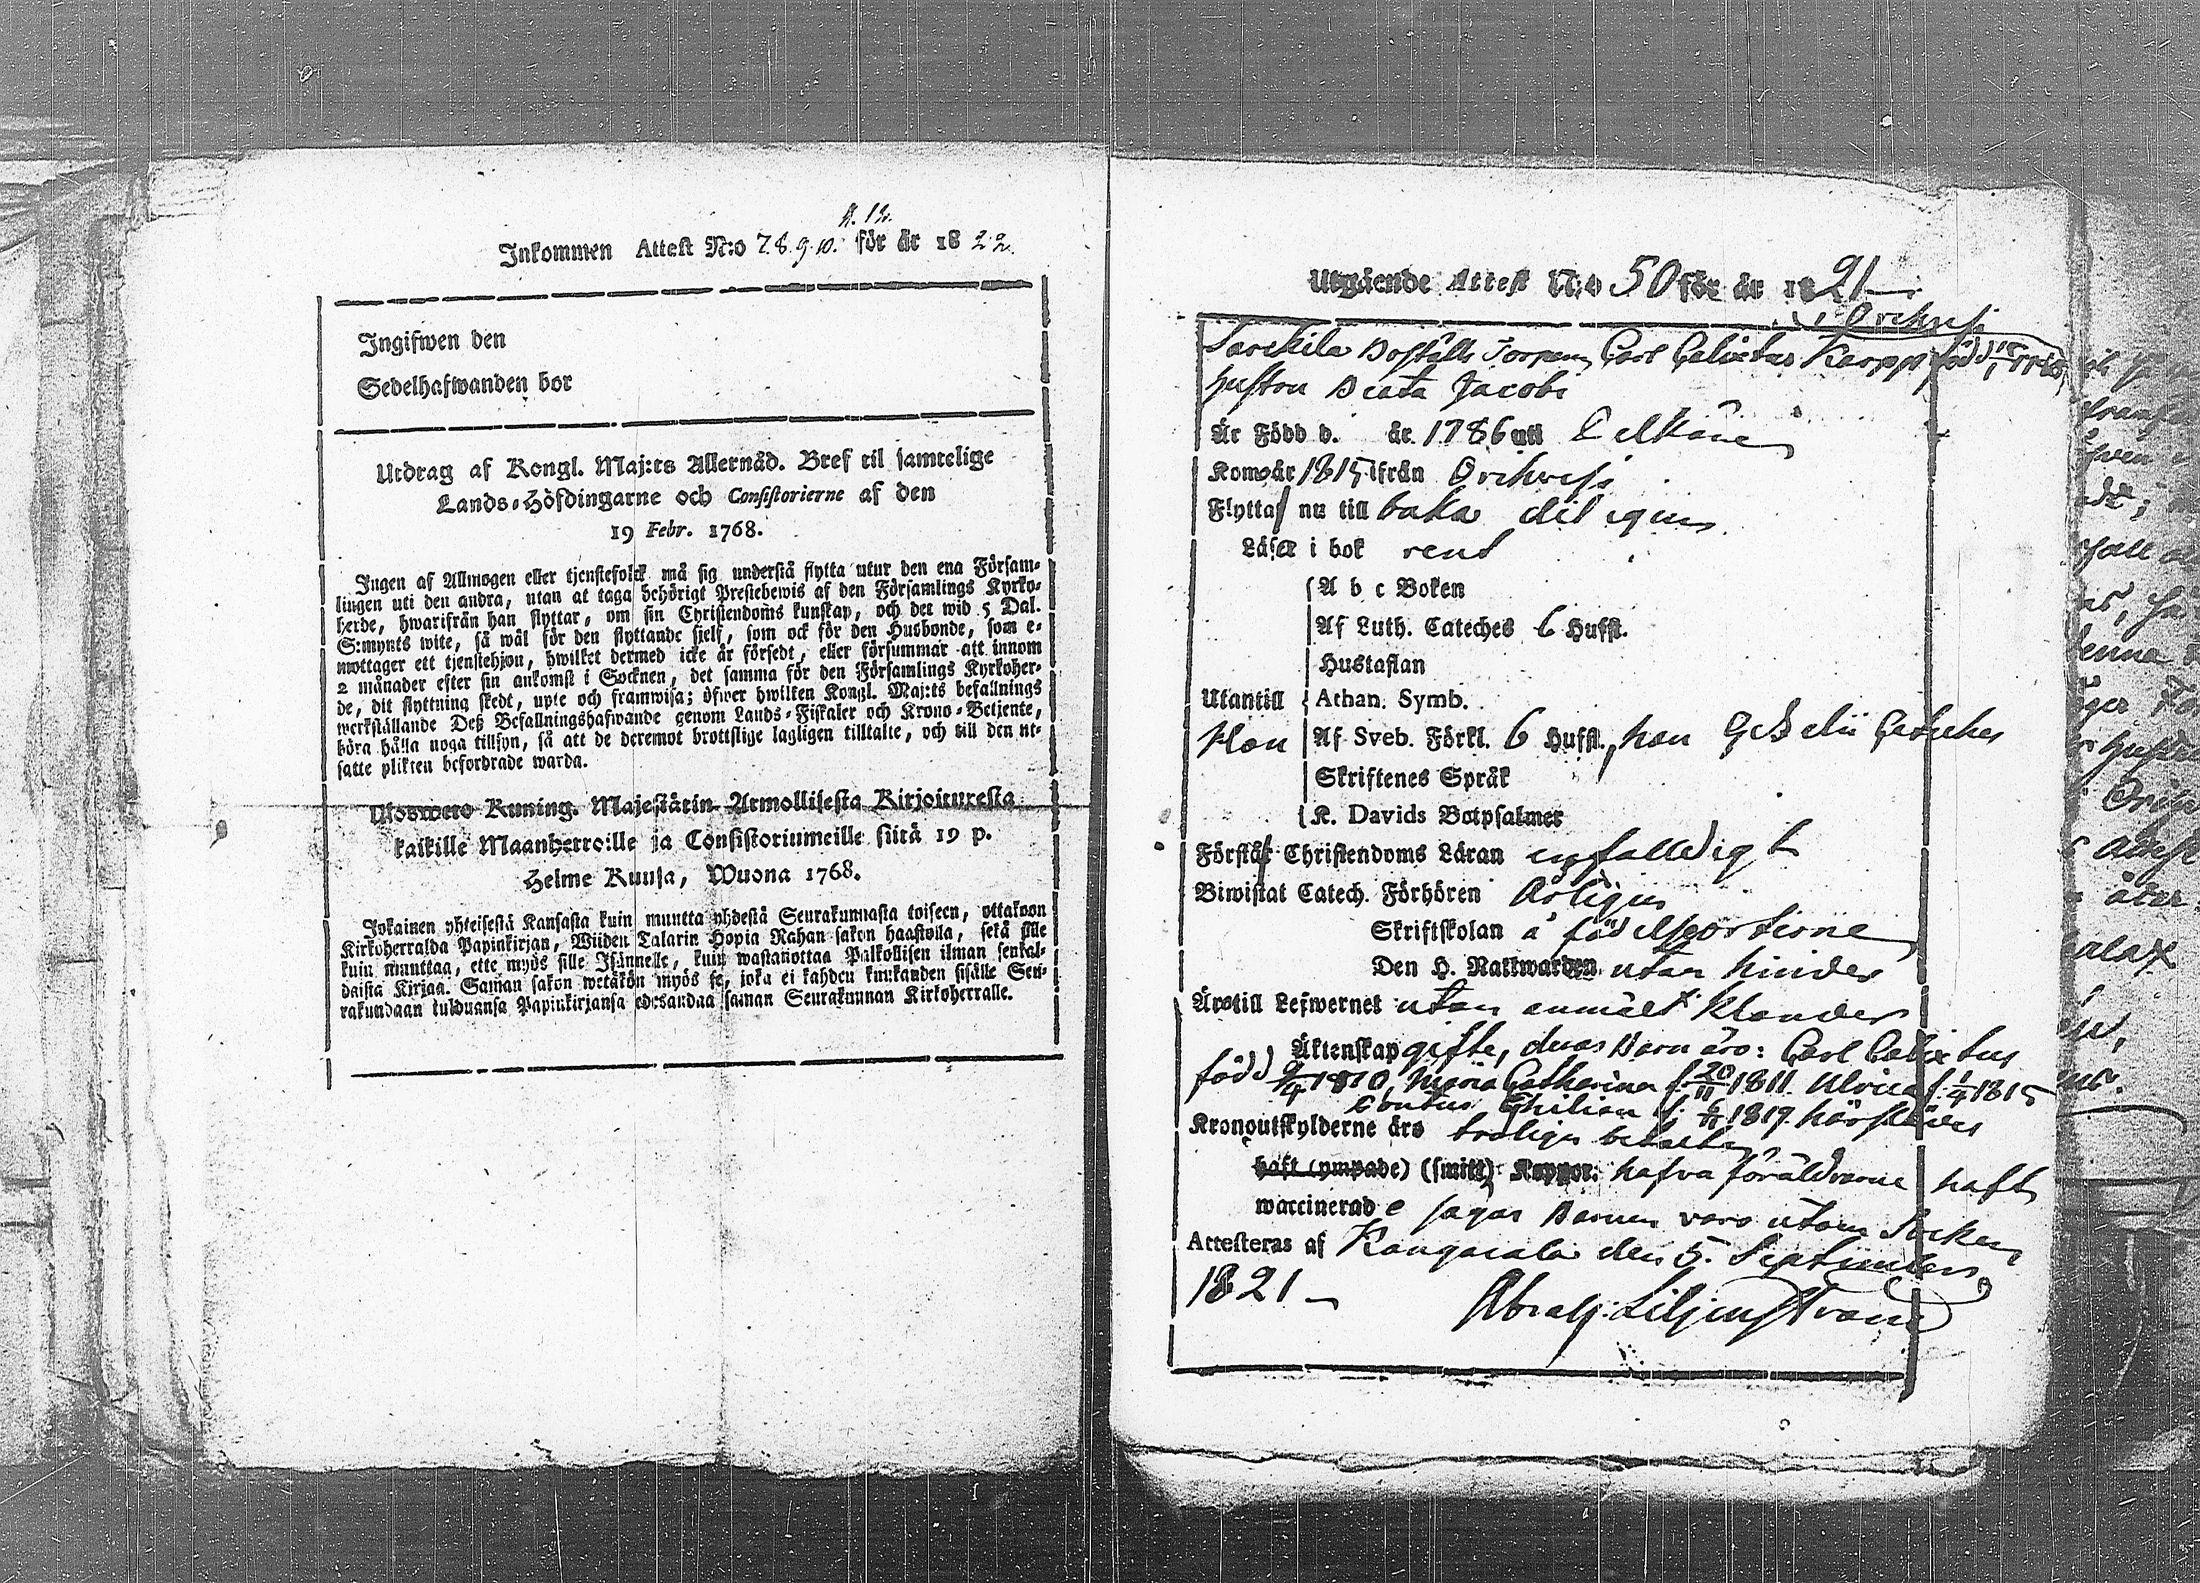 11. 12.
Inkommen Attest N:o 7. 8. 9. 10. för år 1822.
Ingifwen den
Sedelhafwanden bor
Utdrag af Kongl. Maj:ts Allernåd. Bref til samtelige
Lands-Höfdingarne och Consistorierne af den
19 Febr. 1768.
Ingen af Allmogen eller tjenstefolck må sig understå flytta utur den ena Försam-
lingen uti den andra, utan at taga behörigt Prestebewis af den Församlings Kyrko-
herde, hwarifrån han flyttar, om sin Christendoms kunskap, och det wid 5 Dal.
S:mynts wite, så wäl för den flyttande sjelf, som ock för den Husbonde, som e-
mottager ett tjenstehjon, hwilket dermed icke är försedt, eller försummar att innom
2 månader efter sin ankomst i Socknen, det samma för den Församlings Kyrkoher-
de, dit flyttning skedt, upte och framwisa; öfwer hwilken Kongl. Maj:ts befallnings
werkställande Deß Befallningshafwande genom Lands-Fiskaler och Krono-Betjente,
böra hålla noga tillsyn, så att de deremot brottslige lagligen tilltalte, och till den ut-
satte plikten befordrade warda.
Ulosweto Kuning. Majestätin Armollisesta Kirjoituresta
kaikille Maanherroille ja Consistoriumeille siitä 19 p.
Helme Kuusa, Wuona 1768.
Jokainen yhteisestä Kansasta kuin muutta yhdestä Seurakunnasta toiseen, ottakoon
Kirkoherralda Papinkirjan, Wiiden Talarin Hopia Rahan sakon haastolla, sekä sille
kuin muuttaa, ette myös sille Isännelle, kuin wastanottaa Palkollisen ilman senkal-
daista Kirjaa. Saman sakon wetäkön myös se, joka ei kahden kuukauden sisälle Seu-
rakundaan tulduansa Papinkirjansa edesandaa saman Seurakunnan Kirkoherralle.
Utgående Attest N:o 50 för år 1821
i Orihvesi
Sarckila Boställs Torparn Carl Calixtus Karpp född
hustru Beata Jacobs
Är Född d. år 1786 uti Pelkäne
Kom år 1815 ifrån Orihvesi
Flytta nu till baka dit igen
Läser i bok rent
A b c Boken
Af Luth. Cateches 6 Hufst.
Hustaflan
Utantill Athan. Symb.
Hon Af Sveb. Förkl. 6 Hufst., han Gezelii Cateches
Skriftenes Språk
K. Davids Botpsalmer
Förstår Christendoms Läran enfalldigt
Biwistat Catech. Förhören Årligen
Skriftskolan å födelseortirne
Den H. Nattwarden utan hinder
Ärotill Lefwernet utan anmält klander
Äktenskap gifte, deras Barn äro: Carl Calixtus
född 9/4 1810, Maria Catharina f. 20/11 1811. Ulrica f. 1/4 1815
f. 6/11 1819. härstädes
Kronoutskylderne äro troligen betalte
haft (ympade) (smitt) Koppor. hafva föräldrarne haft
waccinerade sägas Barnen vara utom Socken
Attesteras af Kangasala den 5. September
1821 Abrah. Liljenstrand